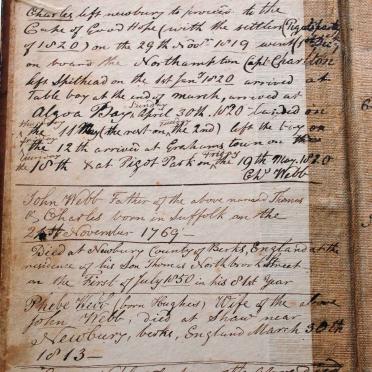 Charles left newbury to proceed to the
Cape of Good Hope (with the settlers Pigots party
of 1820) on the 29th Novr. 1819 went
on board the Northampton Capt Charlton
left Spithead on the 1st Jany 1820 arrived at
Table bay at the end of march, arrived at
Sunday
Algoa Bay, April 30th. 1820 landed on
the 1st May (the rest on the 2nd) left the bay on
the 12th arrived at Grahams town on the
18th & at Pigot Park on the 19th May. 1820
Friday
Chs Webb
John Webb Father of the above named Thomas
& Charles born in Suffolk on the
24th November 1769 —
Died at Newbury County of Berks, England at the
residence of his Son Thomas Northbrook Street
on the First of July 1850 in his 81st year
Phebe Webb (born Hughes) Wife of the above
John Webb, died at Shaw near
Newbury, berks, England March 30th
1813 —